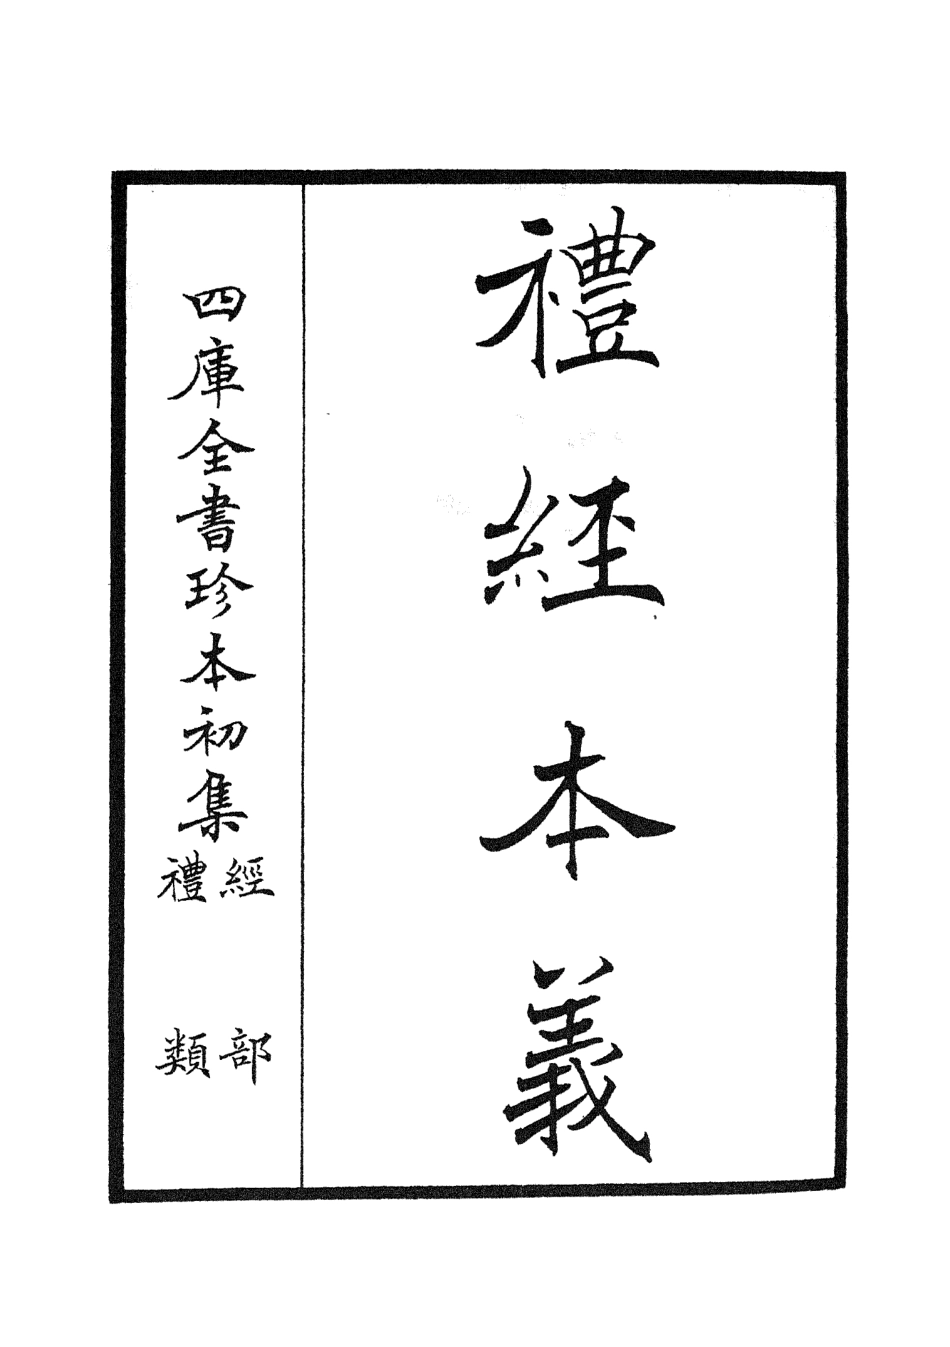 禮經本義
四庫全書珍本初集
經部
禮類